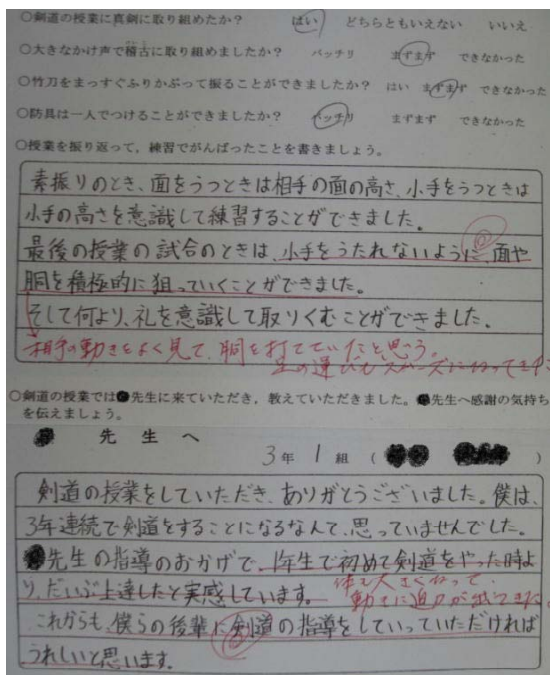 ○剣道の授業に真剣に取り組めたか？ はい どちらともいえない いいえ
○大きなかけ声で稽古に取り組めましたか？ バッチリ まずまず できなかった
○竹刀をまっすぐふりかぶって振ることができましたか？ はい まずまず できなかった
○防具は一人でつけることができましたか？ バッチリ まずまず できなかった
○授業を振り返って，練習でがんばったことを書きましょう。
素振りのとき、面をうつときは相手の面の高さ、小手をうつときは
小手の高さを意識して練習することができました。
最後の授業の試合のときは、小手をうたれないように、面や
胴を積極的に狙っていくことができました。
そして何より、礼を意識して取りくむことができました。
相手の動きをよく見て、胴を打てていたと思う。
足の運びもスムーズになってきた
○剣道の授業では 先生に来ていただき，教えていただきました。 先生へ感謝の気持ち
を伝えましょう。
先生へ
3年 1組 ( )
剣道の授業をしていただき、ありがとうございました。僕は、
3年連続で剣道をすることになるなんて、思っていませんでした。
先生の指導のおかげで、1年生で初めて剣道をやった時よ
り、だいぶ上達したと実感しています。
体も大きくなって、
動きに迫力が出てきた。
これからも、僕らの後輩に剣道の指導をしていっていただければ
うれしいと思います。